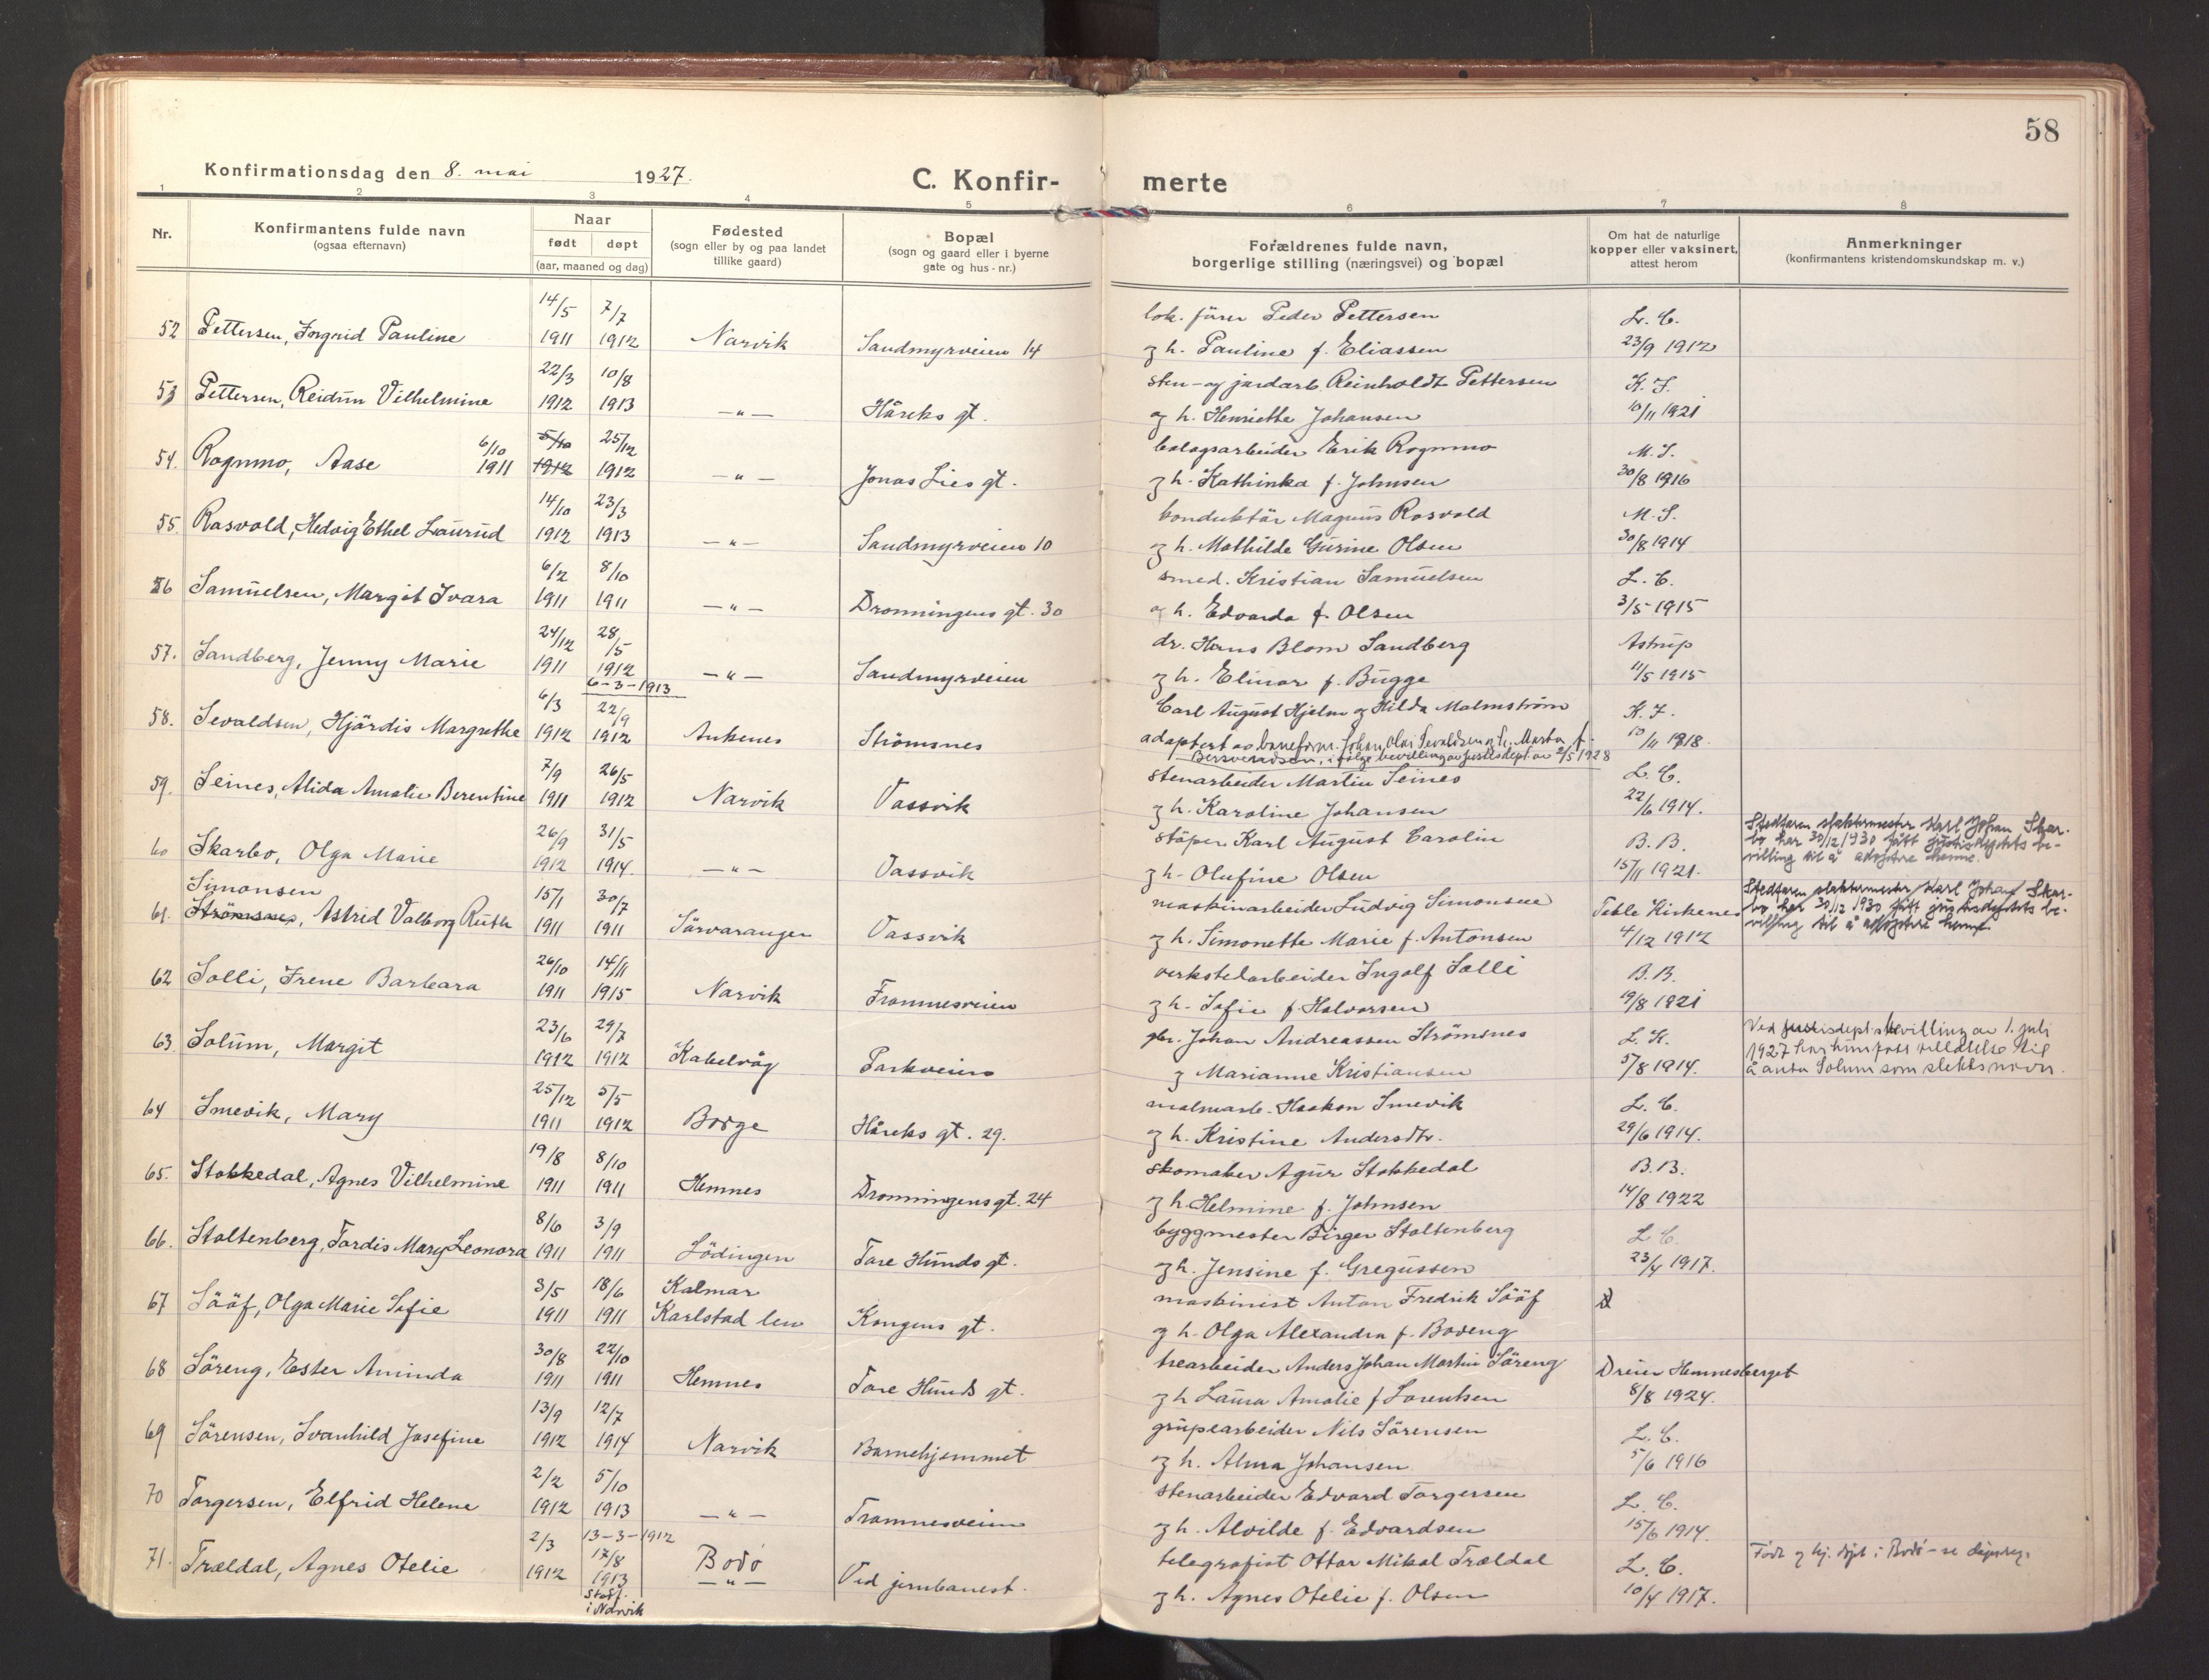 58
Konfirmationsdag den 8. mai 1927.
C. Konfir-
merte
1 2 3 4 5 6 7 8
Nr.
Konfirmantens fulde navn
(ogsaa efternavn)
Naar
født døpt
(aar, maaned og dag)
Fødested
(sogn eller by og paa landet
tillike gaard)
Bopæl
(sogn og gaard eller i byerne
gate og hus-nr.)
Forældrenes fulde navn,
borgerlige stilling (næringsvei) og bopæl
Om hat de naturlige
kopper eller vaksinert,
attest herom
Anmerkninger
(konfirmantens kristendomskundskap m. v.)
14/5 7/7 lok. fører Peder Pettersen L. C.
52 Pettersen, Ingrid Pauline 1911 1912 Narvik Sandmyrveien 14 og h. Pauline f. Eliassen 23/9 1912
22/3 10/8 sten- og jordarb. Reinholdt Pettersen K. J.
53 Pettersen, Reidun Vilhelmine 1912 1913 — " — Håreks gt. og h. Henriette Johansen 10/11 1921
6/10 5/10 25/12 bolagsarbeider Erik Rognmo M. S.
54. Rognmo, Aase 1911 1912 1912 — " — Jonas Lies gt. og h. Kathinka f. Johnsen 30/8 1916
14/10 23/3 konduktör Magnus Rosvold M. S.
55. Rosvold, Hedvig Ethel Laurud 1912 1913 — " — Sandmyrveien 10 og h. Mathilde Gurine Olsen 30/8 1914
6/2 8/10 smed. Kristian Samuelsen L. C.
56 Samuelsen, Margit Ivara 1911 1911 — " — Dronningens gt. 30 og h. Edvarda f. Olsen 3/5 1915
24/12 28/5 dr. Hans Blom Sandberg Astrup
57. Sandberg, Jenny Marie 1911 1912 — " — Sandmyrveien og h. Elinor f. Bugge 11/5 1915
6-3-1913
6/3 22/9 Carl August Hjelm og Hilda Malmström K. J.
58. Sevaldsen, Hjördis Margrethe 1912 1912 Ankenes Strömsnes adoptert av baneform. Johan Olai Sevaldsen og h. Marta f. 10/11 1918.
Bersvendsen, i følge bevilling av Justisdept. av 2/5 1928
7/9 26/5 stenarbeider Martin Seines L. C.
59. Seines, Alida Amalie Berentine 1911 1912 Narvik Vassvik og h. Karoline Johansen 22/6 1914.
26/9 31/5 støper Karl August Carolin B. B.
60 Skarbo, Olga Marie 1912 1914. — " — Vassvik og h. Olufine Olsen 15/11 1921.
Stedfaren slaktermester Karl Johan Skar-
bo har 30/12 1930 fått justisdeptets be-
villing til å adoptere henne.
Simonsen 15/1 30/7 maskinarbeider Ludvig Simonsen
61. Strömsnes, Astrid Valborg Ruth 1911 1911 Sörvaranger Vassvik og h. Simonette Marie f. Antonsen Kirkenes 4/12 1912
Stedfaren slaktermester Karl Johan Skar-
bo har 30/12 1930 fått justisdeptets be-
villing til å adoptere henne
26/10 14/11 verkstedarbeider Ingolf Solli B. B.
62 Solli, Irene Barbara 1911 1915 Narvik Framnesveien og h. Sofie f. Halvorsen 19/8 1921
23/6 29/7 Johan Andreassen Strömsnes L. K.
63. Solum, Margit 1912 1912 Kabelvåg Parkveien og Marianne Kristiansen 5/8 1914.
Ved justisdept.s bevilling av 1. juli
1927 har hun fått tillatelse til
å anta Solum som slektsnavn.
25/12 5/5 malmarb. Haakon Smevik L. C.
64 Smevik, Mary 1911 1912 Borge Håreks gt. 29. og h. Kristine Andersdtr. 29/6 1914.
19/8 8/10 skomaker Agur Stokkedal B. B.
65. Stokkedal, Agnes Vilhelmine 1911 1911 Hemnes Dronningens gt. 24 og h. Helmine f. Johnsen 14/8 1922
8/6 3/9 byggmester Birger Stoltenberg L. C.
66. Stoltenberg, Tordis Mary Leonora 1911 1911 Lödingen Tore Hunds gt. og h. Jensine f. Gregussen 23/4 1917.
3/5 18/6 Kalmar maskinist Anton Fredrik Sööf
67 Sööf, Olga Marie Sofie 1911 1911 Karlstad len Kongens gt. og h. Olga Alexandra f. Boveng
30/8 22/10 trearbeider Anders Johan Martin Söreng Dreier Hemnesberget
68 Söreng, Ester Aminda 1911 1911 Hemnes Tore Hunds gt. og h Laura Amalie f Lorentsen 8/8 1924.
13/9 12/7 grupearbeider Nils Sörensen L. C.
69 Sörensen, Svanhild Josefine 1912 1914 Narvik Barnehjemmet og h. Alma Johansen 5/6 1916
2/2 5/10 stenarbeider Edvard Torgersen L. C.
70 Torgersen, Elfrid Helene 1912 1913 — " — Framnesveien og h. Alvilde f. Edvardsen 15/6 1914.
2/3 13-3-1912
17/8 Bodö telegrafist Ottar Mikal Trældal L. C.
71. Trældal, Agnes Otelie 1912 1913 — " — Ved jernbanest. og h. Agnes Otelie f. Olsen 10/4 1917.
Født og hj. døpt i Bodö - se dåpsreg.
stadf.
i Narvik